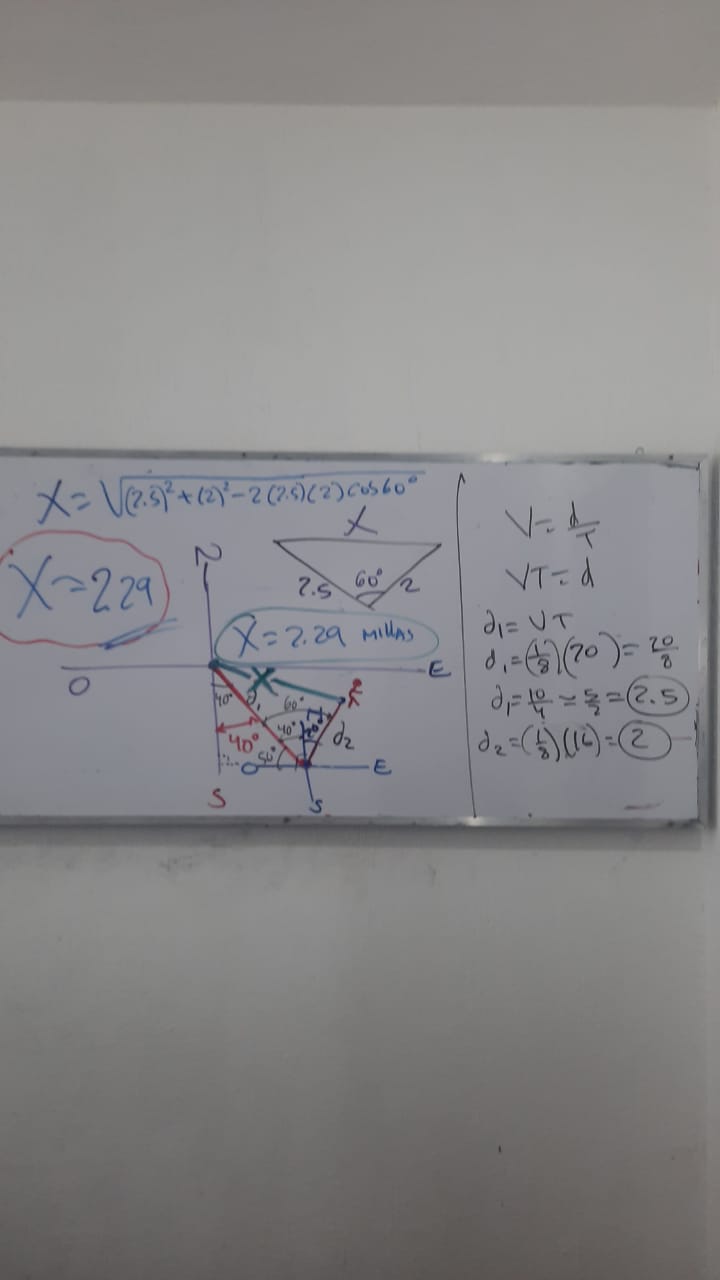 X=√(2.5)²+(2)²-2(2.5)(2)cos60°
X=2.29
X
2.5 60° 2
N
X=2.29 MILLAS
O E
X
40° d₁ 60°
40° 40° 20° d₂
50°
O E
S S
V=d/T
VT=d
d₁=VT
d₁=(1/8)(20)=20/8
d₁=10/4=5/2=2.5
d₂=(1/8)(16)=2